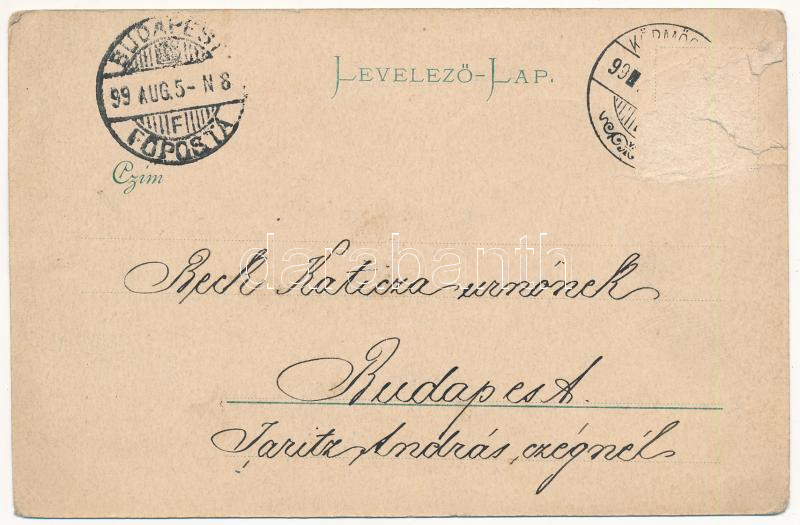 BUDAPEST
99 AUG. 5 - N 8
F
FŐPOSTA
LEVELEZŐ-LAP.
KÖRMÖC
99
Czím
darabanth
Beck Katicza urnőnek
Budapest.
Jaritz András czégnél